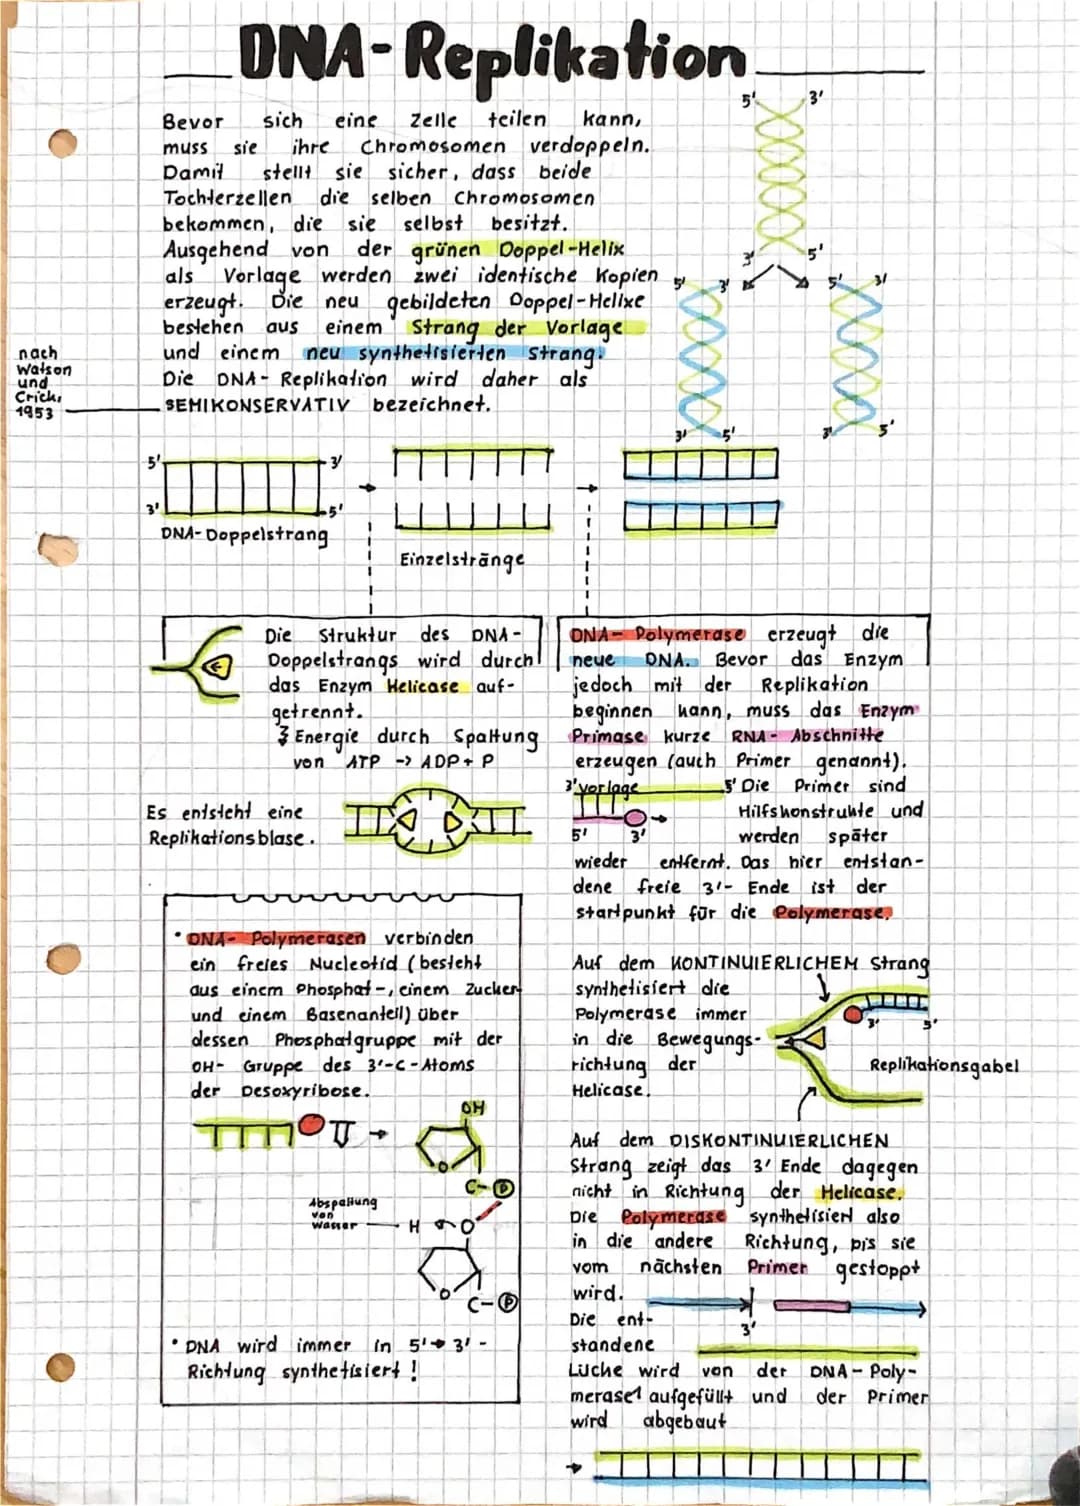 DNA-Replikation
5' 3'
Bevor sich eine Zelle teilen kann,
muss sie ihre Chromosomen verdoppeln.
Damit stellt sie sicher, dass beide
Tochterzellen die selben Chromosomen
bekommen, die sie selbst besitzt.
Ausgehend von der grünen Doppel-Helix
als Vorlage werden zwei identische Kopien
erzeugt. Die neu gebildeten Doppel-Helixe
bestehen aus einem Strang der Vorlage
und einem neu synthetisierten Strang.
Die DNA-Replikation wird daher als
SEMIKONSERVATIV bezeichnet.
nach
Watson
und
Crick,
1953
3' 5'
5' 3' 5' 3'
3' 5' 3' 5'
5' 3'
3' 5'
DNA-Doppelstrang
Einzelstränge
Die Struktur des DNA-
Doppelstrangs wird durch
das Enzym Helicase auf-
getrennt.
Energie durch Spaltung
von ATP -> ADP + P
Es entsteht eine
Replikationsblase.
• DNA-Polymerasen verbinden
ein freies Nucleotid (besteht
aus einem Phosphat-, einem Zucker
und einem Basenanteil) über
dessen Phosphatgruppe mit der
OH- Gruppe des 3'-C-Atoms
der Desoxyribose.
OH
O
C-P
Abspaltung
von
Wasser
H O
O
C-P
• DNA wird immer in 5'→3'-
Richtung synthetisiert!
DNA-Polymerase erzeugt die
neue DNA. Bevor das Enzym
jedoch mit der Replikation
beginnen kann, muss das Enzym
Primase kurze RNA-Abschnitte
erzeugen (auch Primer genannt).
3' Vorlage 5' Die Primer sind
Hilfskonstrukte und
5' 3' werden später
wieder entfernt. Das hier entstan-
dene freie 3'-Ende ist der
startpunkt für die Polymerase.
Auf dem KONTINUIERLICHEM Strang
synthetisiert die
Polymerase immer
in die Bewegungs-
richtung der
Helicase.
3' 5'
Replikationsgabel
Auf dem DISKONTINUIERLICHEN
Strang zeigt das 3' Ende dagegen
nicht in Richtung der Helicase.
Die Polymerase synthetisiert also
in die andere Richtung, bis sie
vom nächsten Primer gestoppt
wird.
3'
Die ent-
standene
Lücke wird von der DNA-Poly-
merase1 aufgefüllt und der Primer
wird abgebaut